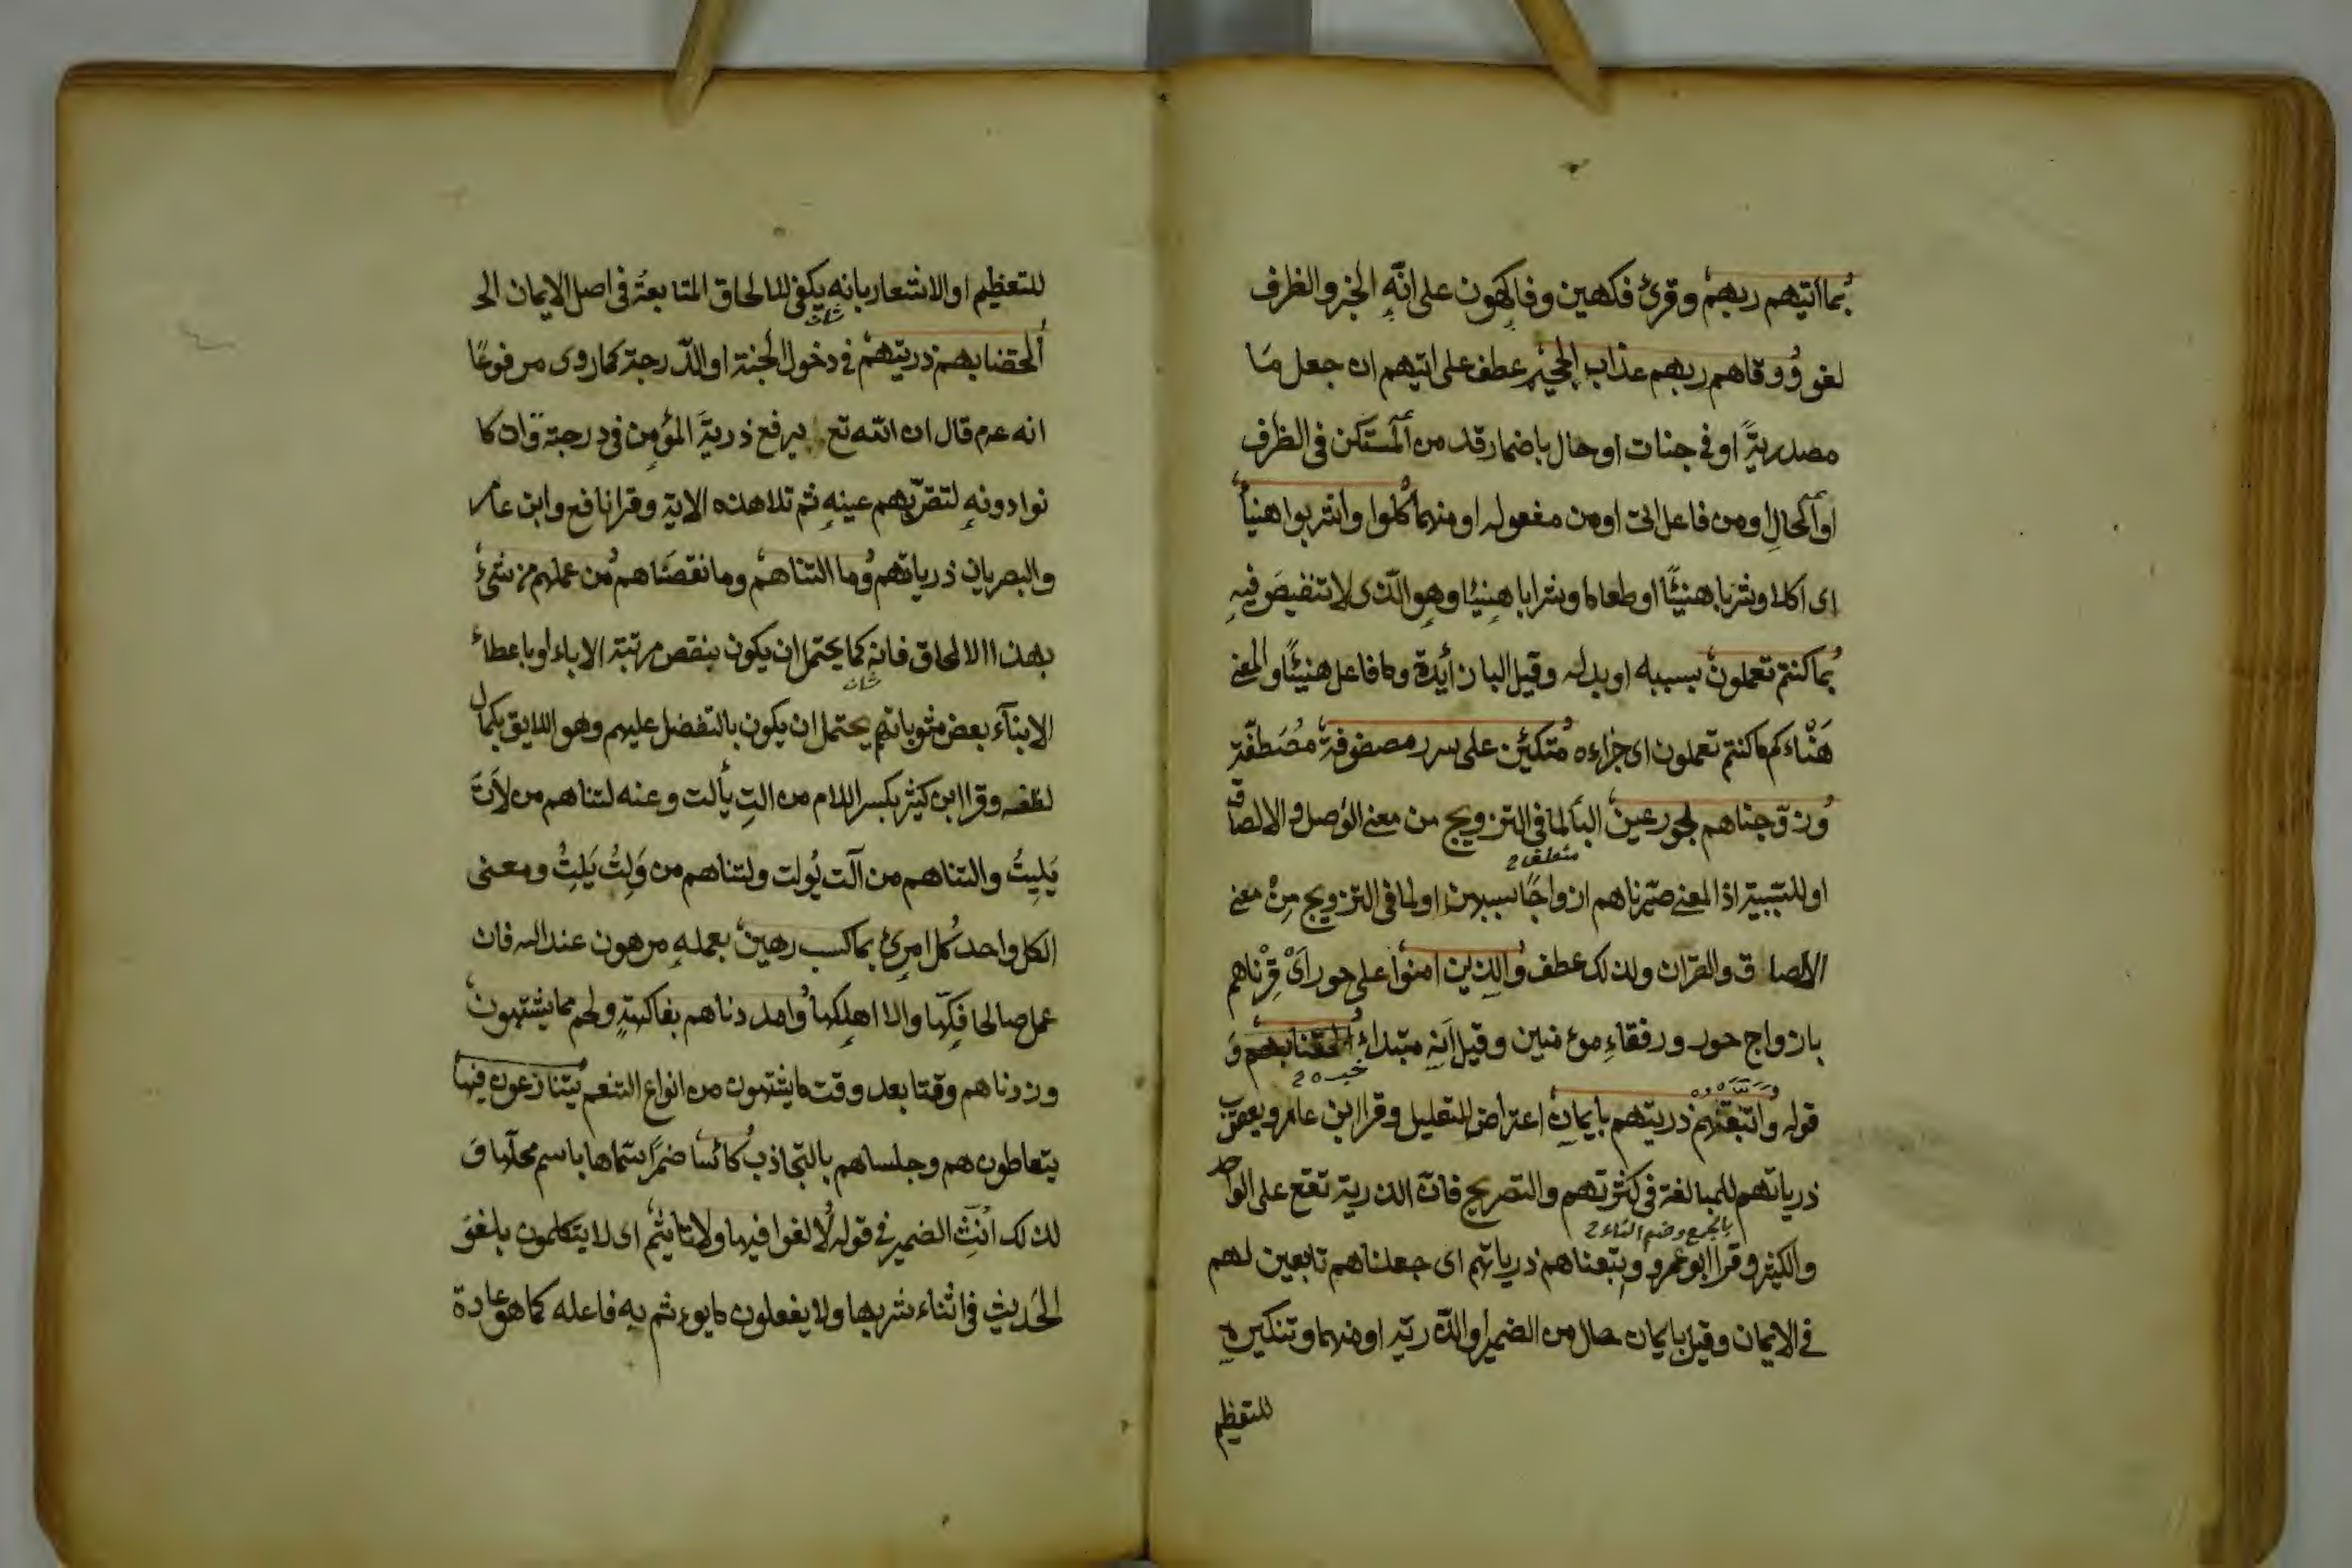 بما اتيهم ربهم وقرئ فكهين وفاكهون على انّه الخبر والظرف
لغو ووقاهم ربهم عذاب الجحيم عطف على اتيهم ان جعل مَا
مصدريّةً او فى جنات او حال باضمار قد من المستكن فى الظرف
او الحالِ او من فاعل اتى او من مفعوله او منهما كلوا واشربوا هنيأ
اى اكلا وشربا هنيئًا او طعاما وشرابا هنيئا وهو الّذى لا تنغيصَ فيهِ
بما كنتم تعملون بسببه او بدله وقيل البا زأيدة وما فاعل هنيئًا والمعنى
هَنْاءكم ما كنتم تعملون اى جزاءه متكئين على سرر مصفوفة مصطفّة
وزوّجناهم بحور عين البآ لما فى التزويج من معنى الوَصل و الالصاق
متعلق
او للسّببيّة اذ المعنى صيّرناهم ازواجًا بسببهن او لما فى التزويج مِنْ معنى
الالصاق والقران ولذلك عطف والذين امنوا على حور اَىْ قرنّاهم
بازواج حور ورفقاءِ موءمنين وقيل اَنه مبتداءُ الحقنا بهم وَ
خبره
قوله واتبعتهم ذريتهم بايمان اعتراض للتعليل وقرا ابن عامر ويعقوب
ذرياتهم للمبالغة فى كثرتهم والتصريح فانّ الذرية تقع على الواحد
بالجمع وضم التاء
والكثير وقرا ابو عمرو واتبعناهم ذرياتهم اى جعلناهم تابعين لهم
فى الايمان وقيل بايمان حال من الضمير او الذّريّه او منهما وتنكيره
للتعظيم
للتعظيم او الاشعار بانه يكفى للالحاق المتابعةُ فى اصل الايمان
ألحقنا بهم ذريتهم فى دخول الجنة او الدّرجة كما روى مرفوعًا
انه عرم قال ان الله تع يرفع ذريةَ المؤمِن فى درجته وان كا
نوا دونهِ لتقرّبهم عينهِ ثم تلا هذه الاية وقرا نافع وابن عامر
والبصريان ذرياتهم وما التناهم وما نقصَناهم من عملهم من شىءٍ
بهذا الالحاق فانه كما يحتمل ان يكون بنقص مرتبة الاباء او باعطاء
الابنآء بعض مثوباتهم يحتمل ان يكون بالتفضل عليهم وهو اللايق بكمال
لطفه وقرا ابن كثير بكسر اللام من التِ يألت وعنه لتناهم من لاَتَ
يَلِيتُ والتناهم من آلت يُولت ولتناهم من وَلِتُ يَلِتُ ومعنى
الكل واحد كل امرِئ بما كسب رهين بعملهِ مرهون عند الله فان
عمل صالحا فكّها والا اهلكها وامددناهم بفاكهةٍ ولحم مما يشتهون
وزدناهم وقتا بعد وقت ما يشتهون من انواع التنعم يتنازعون فيها
يتعاطون هم وجلساهم بالتّجاذب كائسا خمرًا سمّاها باسم محلّها فَ
لذلك انّث الضمير فى قوله لا لغوا فيها ولا تاثيم اى لا يتكلمون بلغوَ
الحَديثِ فى اثناء شربها ولا يفعلون ما يوءثم به فاعله كما هو عادة